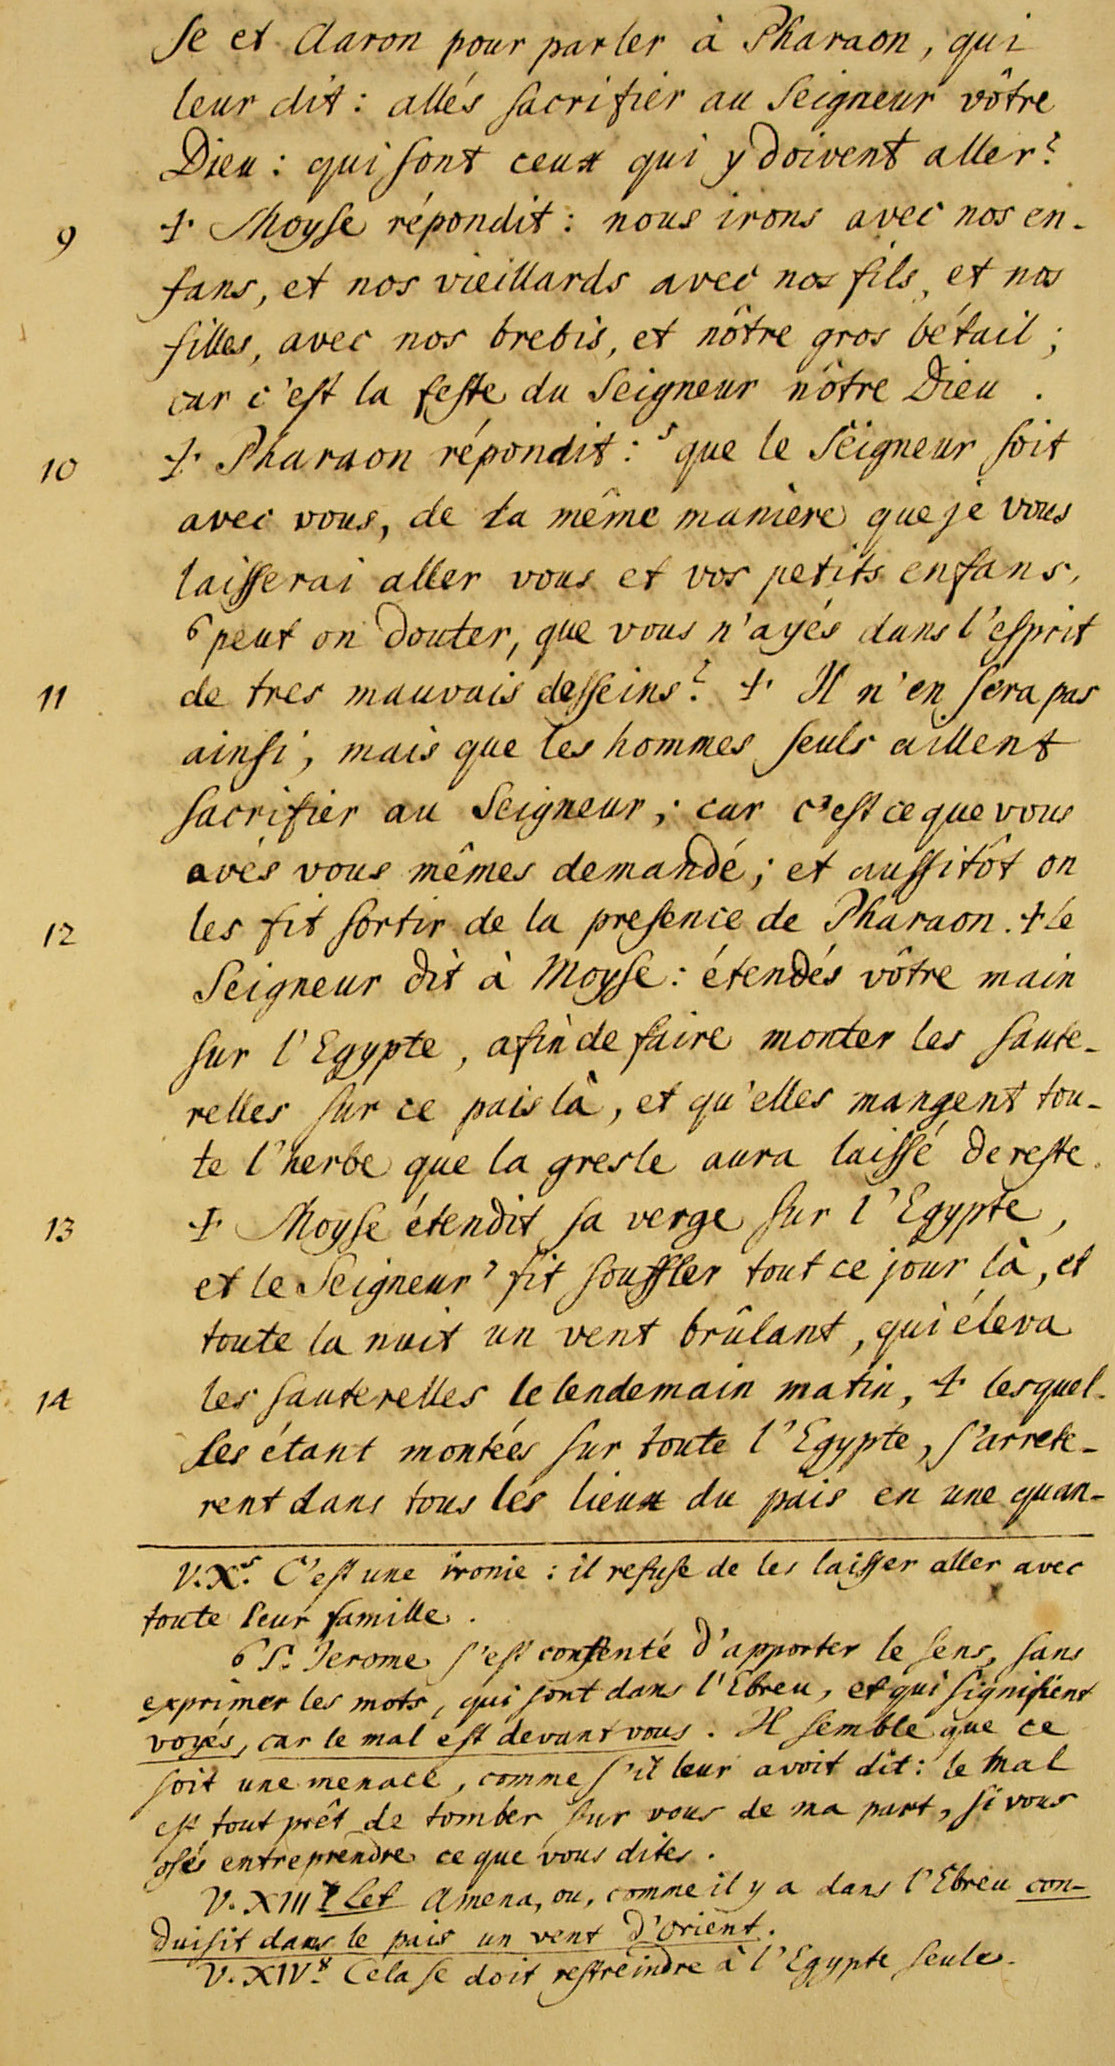 se et Aaron pour parler à Pharaon, qui
leur dit : allés sacrifier au Seigneur vôtre
Dieu : qui sont ceux qui y doivent aller ?
9 ☩ Moyse répondit : nous irons avec nos en-
fans, et nos vieillards avec nos fils, et nos
filles, avec nos brebis, et nôtre gros bétail ;
car c'est la feste du Seigneur nôtre Dieu .
10 ☩ Pharaon répondit : ⁵ que le Seigneur soit
avec vous, de la même manière que je vous
laisserai aller vous et vos petits enfans,
⁶ peut on douter, que vous n'ayés dans l'esprit
11 de tres mauvais desseins ? ☩ Il n'en sera pas
ainsi ; mais que les hommes seuls aillent
sacrifier au Seigneur ; car c'est ce que vous
avés vous mêmes demandé ; et aussitôt on
12 les fit sortir de la presence de Pharaon. ☩ le
Seigneur dit à Moyse : étendés vôtre main
sur l'Egypte, afin de faire monter les saute-
relles sur ce pais là, et qu'elles mangent tou-
te l'herbe que la gresle aura laissé de reste.
13 ☩ Moyse étendit sa verge sur l'Egypte,
et le Seigneur ⁷ fit souffler tout ce jour là, et
toute la nuit un vent brûlant, qui éleva
14 les sauterelles le lendemain matin, ☩ lesquel-
les étant montées sur toute l'Egypte, s'arrete-
rent dans tous les lieux du pais en une quan-
V. X ⁵. C'est une ironie : il refuse de les laisser aller avec
toute leur famille .
6 S. Jerome s'est contenté d'apporter le sens, sans
exprimer les mots, qui sont dans l'Ebreu, et qui signifient
voyés, car le mal est devant vous. Il semble que ce
soit une menace, comme s'il leur avoit dit : le mal
est tout prêt de tomber sur vous de ma part, si vous
osés entreprendre ce que vous dites .
V. XIII ⁷ Let Amena, ou, comme il y a dans l'Ebreu con-
duisit dans le pais un vent d'Orient.
V. XIV ⁸ Cela se doit restreindre à l'Egypte seule.